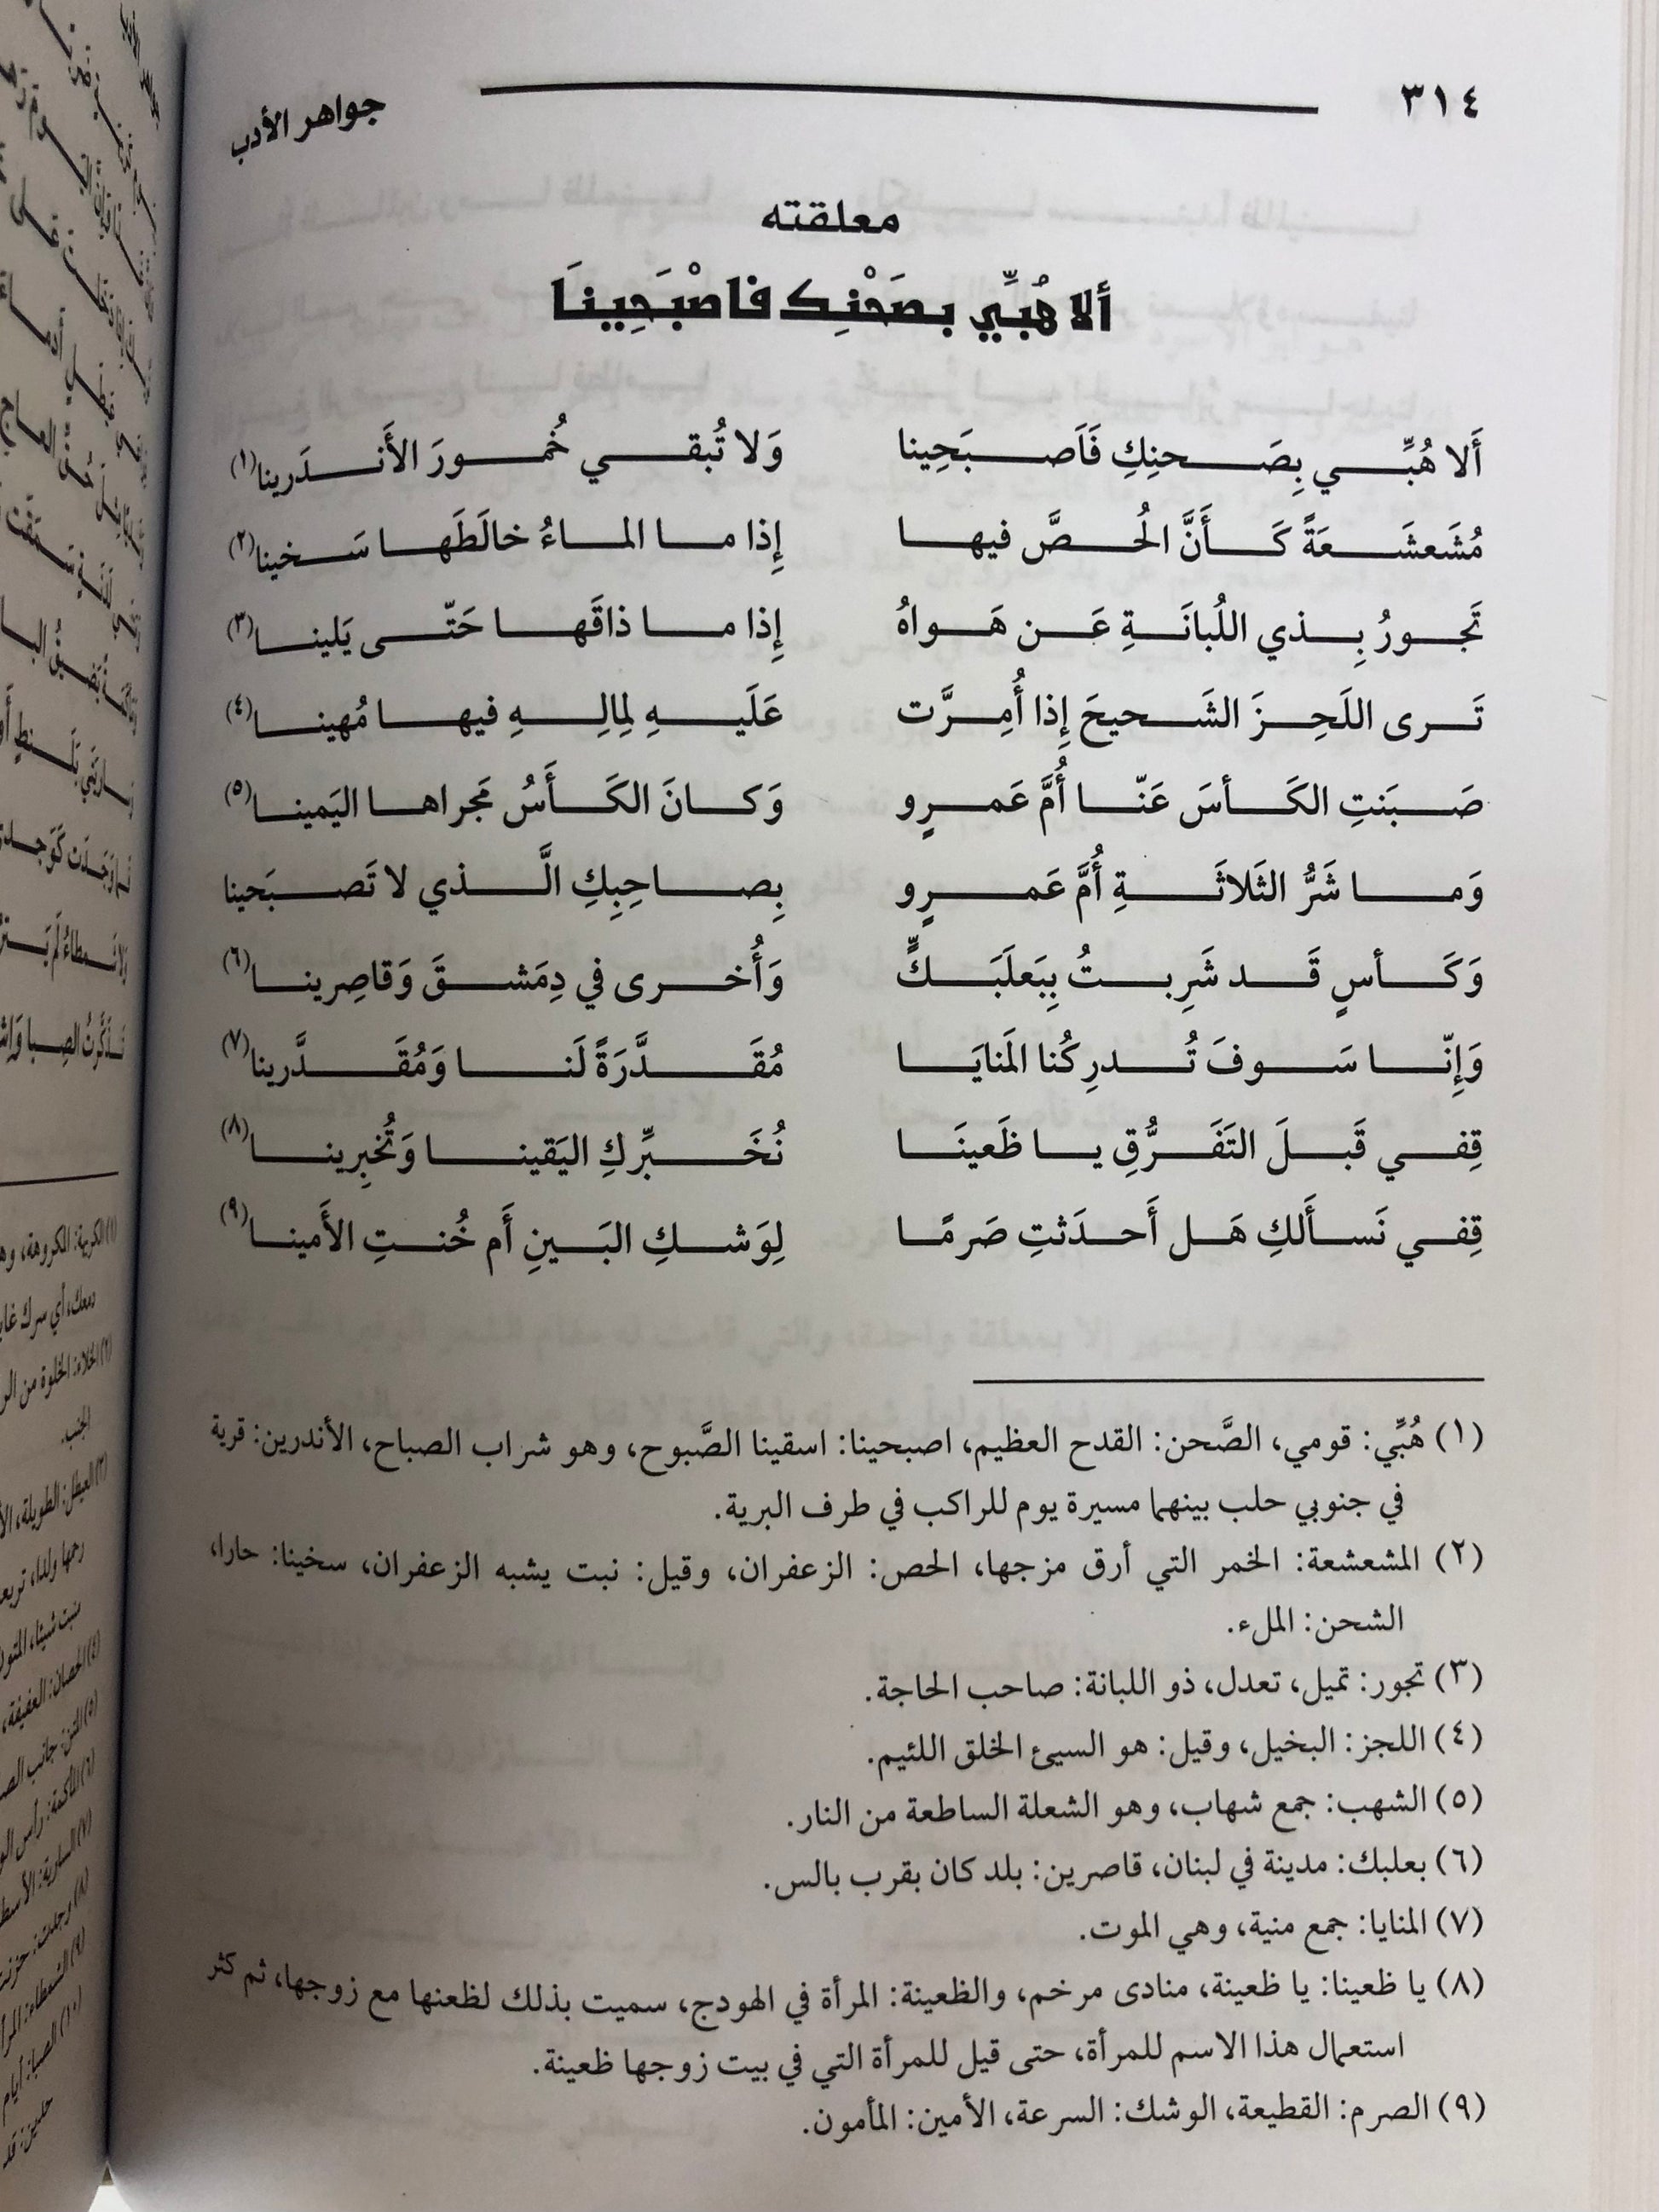 ٣١٤ جواهر الأدب
معلقته
ألا هُبِّي بصَحْنِك فاصْبَحِينَا
أَلا هُبِّي بِصَحنِكِ فَاَصبَحِينا وَلا تُبقي خُمورَ الأَندَرينا(١)
مُشَعشَعَةً كَأَنَّ الحُصَّ فيها إِذا ما الماءُ خالَطَها سَخينا(٢)
تَجورُ بِذي اللُبانَةِ عَن هَواهُ إِذا ما ذاقَها حَتّى يَلينا(٣)
تَرى اللَحِزَ الشَحيحَ إِذا أُمِرَّت عَلَيهِ لِمالِهِ فيها مُهينا(٤)
صَبَنتِ الكَأسَ عَنّا أُمَّ عَمرٍو وَكانَ الكَأسُ مَجراها اليَمينا(٥)
وَما شَرُّ الثَلاثَةِ أُمَّ عَمرٍو بِصاحِبِكِ الَّذي لا تَصبَحينا
وَكَأسٍ قَد شَرِبتُ بِبَعلَبَكٍّ وَأُخرى في دِمَشقَ وَقاصِرينا(٦)
وَإِنّا سَوفَ تُدرِكُنا المَنايَا مُقَدَّرَةً لَنا وَمُقَدَّرينا(٧)
قِفي قَبلَ التَفَرُّقِ يا ظَعينَا نُخَبِّركِ اليَقينا وَتُخبِرِينا(٨)
قِفي نَسأَلكِ هَل أَحدَثتِ صَرمًا لِوَشكِ البَينِ أَم خُنتِ الأَمينا(٩)
(١) هُبِّي: قومي، الصَّحن: القدح العظيم، اصبحينا: اسقينا الصَّبوح، وهو شراب الصباح، الأندرين: قرية
في جنوبي حلب بينهما مسيرة يوم للراكب في طرف البرية.
(٢) المشعشعة: الخمر التي أرق مزجها، الحص: الزعفران، وقيل: نبت يشبه الزعفران، سخينا: حارا،
الشحن: الملء.
(٣) تجور: تميل، تعدل، ذو اللبانة: صاحب الحاجة.
(٤) اللجز: البخيل، وقيل: هو السيئ الخلق اللئيم.
(٥) الشهب: جمع شهاب، وهو الشعلة الساطعة من النار.
(٦) بعلبك: مدينة في لبنان، قاصرين: بلد كان بقرب بالس.
(٧) المنايا: جمع منية، وهي الموت.
(٨) يا ظعينا: يا ظعينة، منادى مرخم، والظعينة: المرأة في الهودج، سميت بذلك لظعنها مع زوجها، ثم كثر
استعمال هذا الاسم للمرأة، حتى قيل للمرأة التي في بيت زوجها ظعينة.
(٩) الصرم: القطيعة، الوشك: السرعة، الأمين: المأمون.